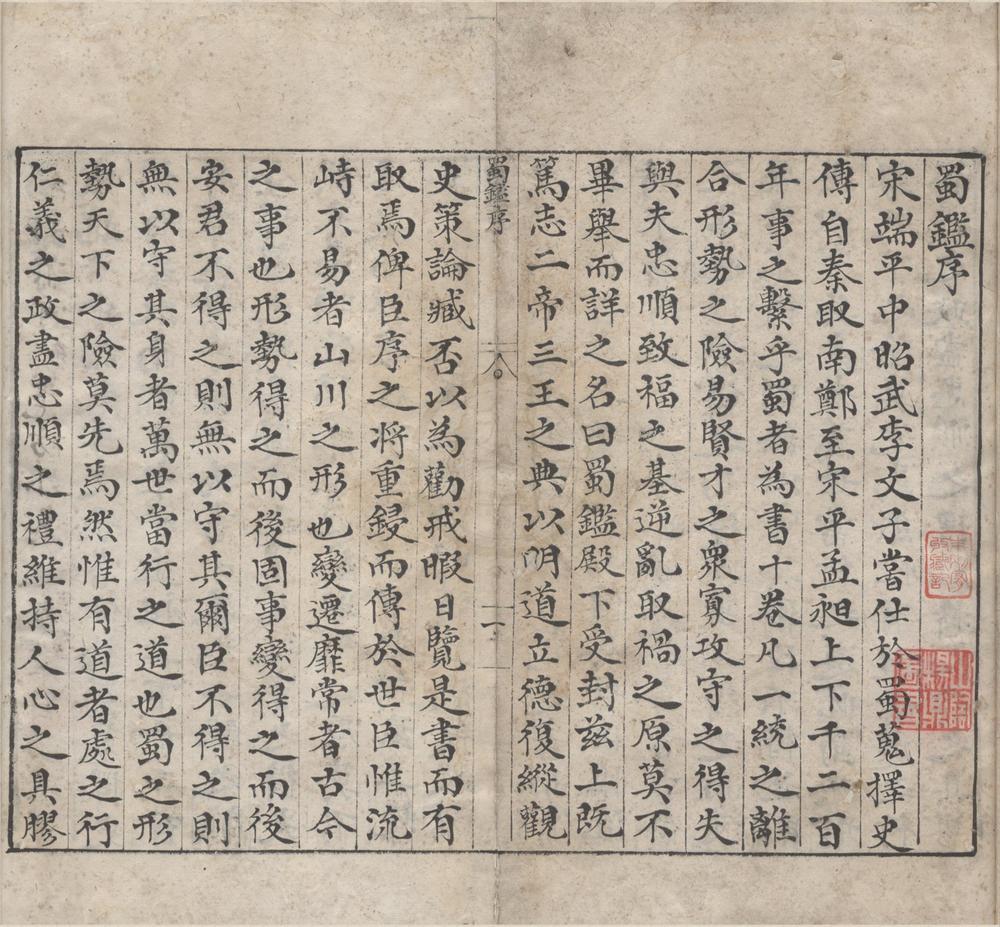 蜀鑑序
宋端平中昭武李文子嘗仕於蜀蒐擇史
傳自秦取南鄭至宋平孟昶上下千二百
年事之繫乎蜀者為書十卷凡一統之離
合形勢之險易賢才之衆寡攻守之得失
與夫忠順致福之基逆亂取禍之原莫不
畢舉而詳之名曰蜀鑑殿下受封茲上既
篤志二帝三王之典以明道立德復縱觀
蜀鑑序 八 一
史策論臧否以為勸戒暇日覽是書而有
取焉俾臣序之将重鋟而傳於世臣惟流
峙不易者山川之形也變遷靡常者古今
之事也形勢得之而後固事變得之而後
安君不得之則無以守其爾臣不得之則
無以守其身者萬世當行之道也蜀之形
勢天下之險莫先焉然惟有道者處之行
仁義之政盡忠順之禮維持人心之具膠